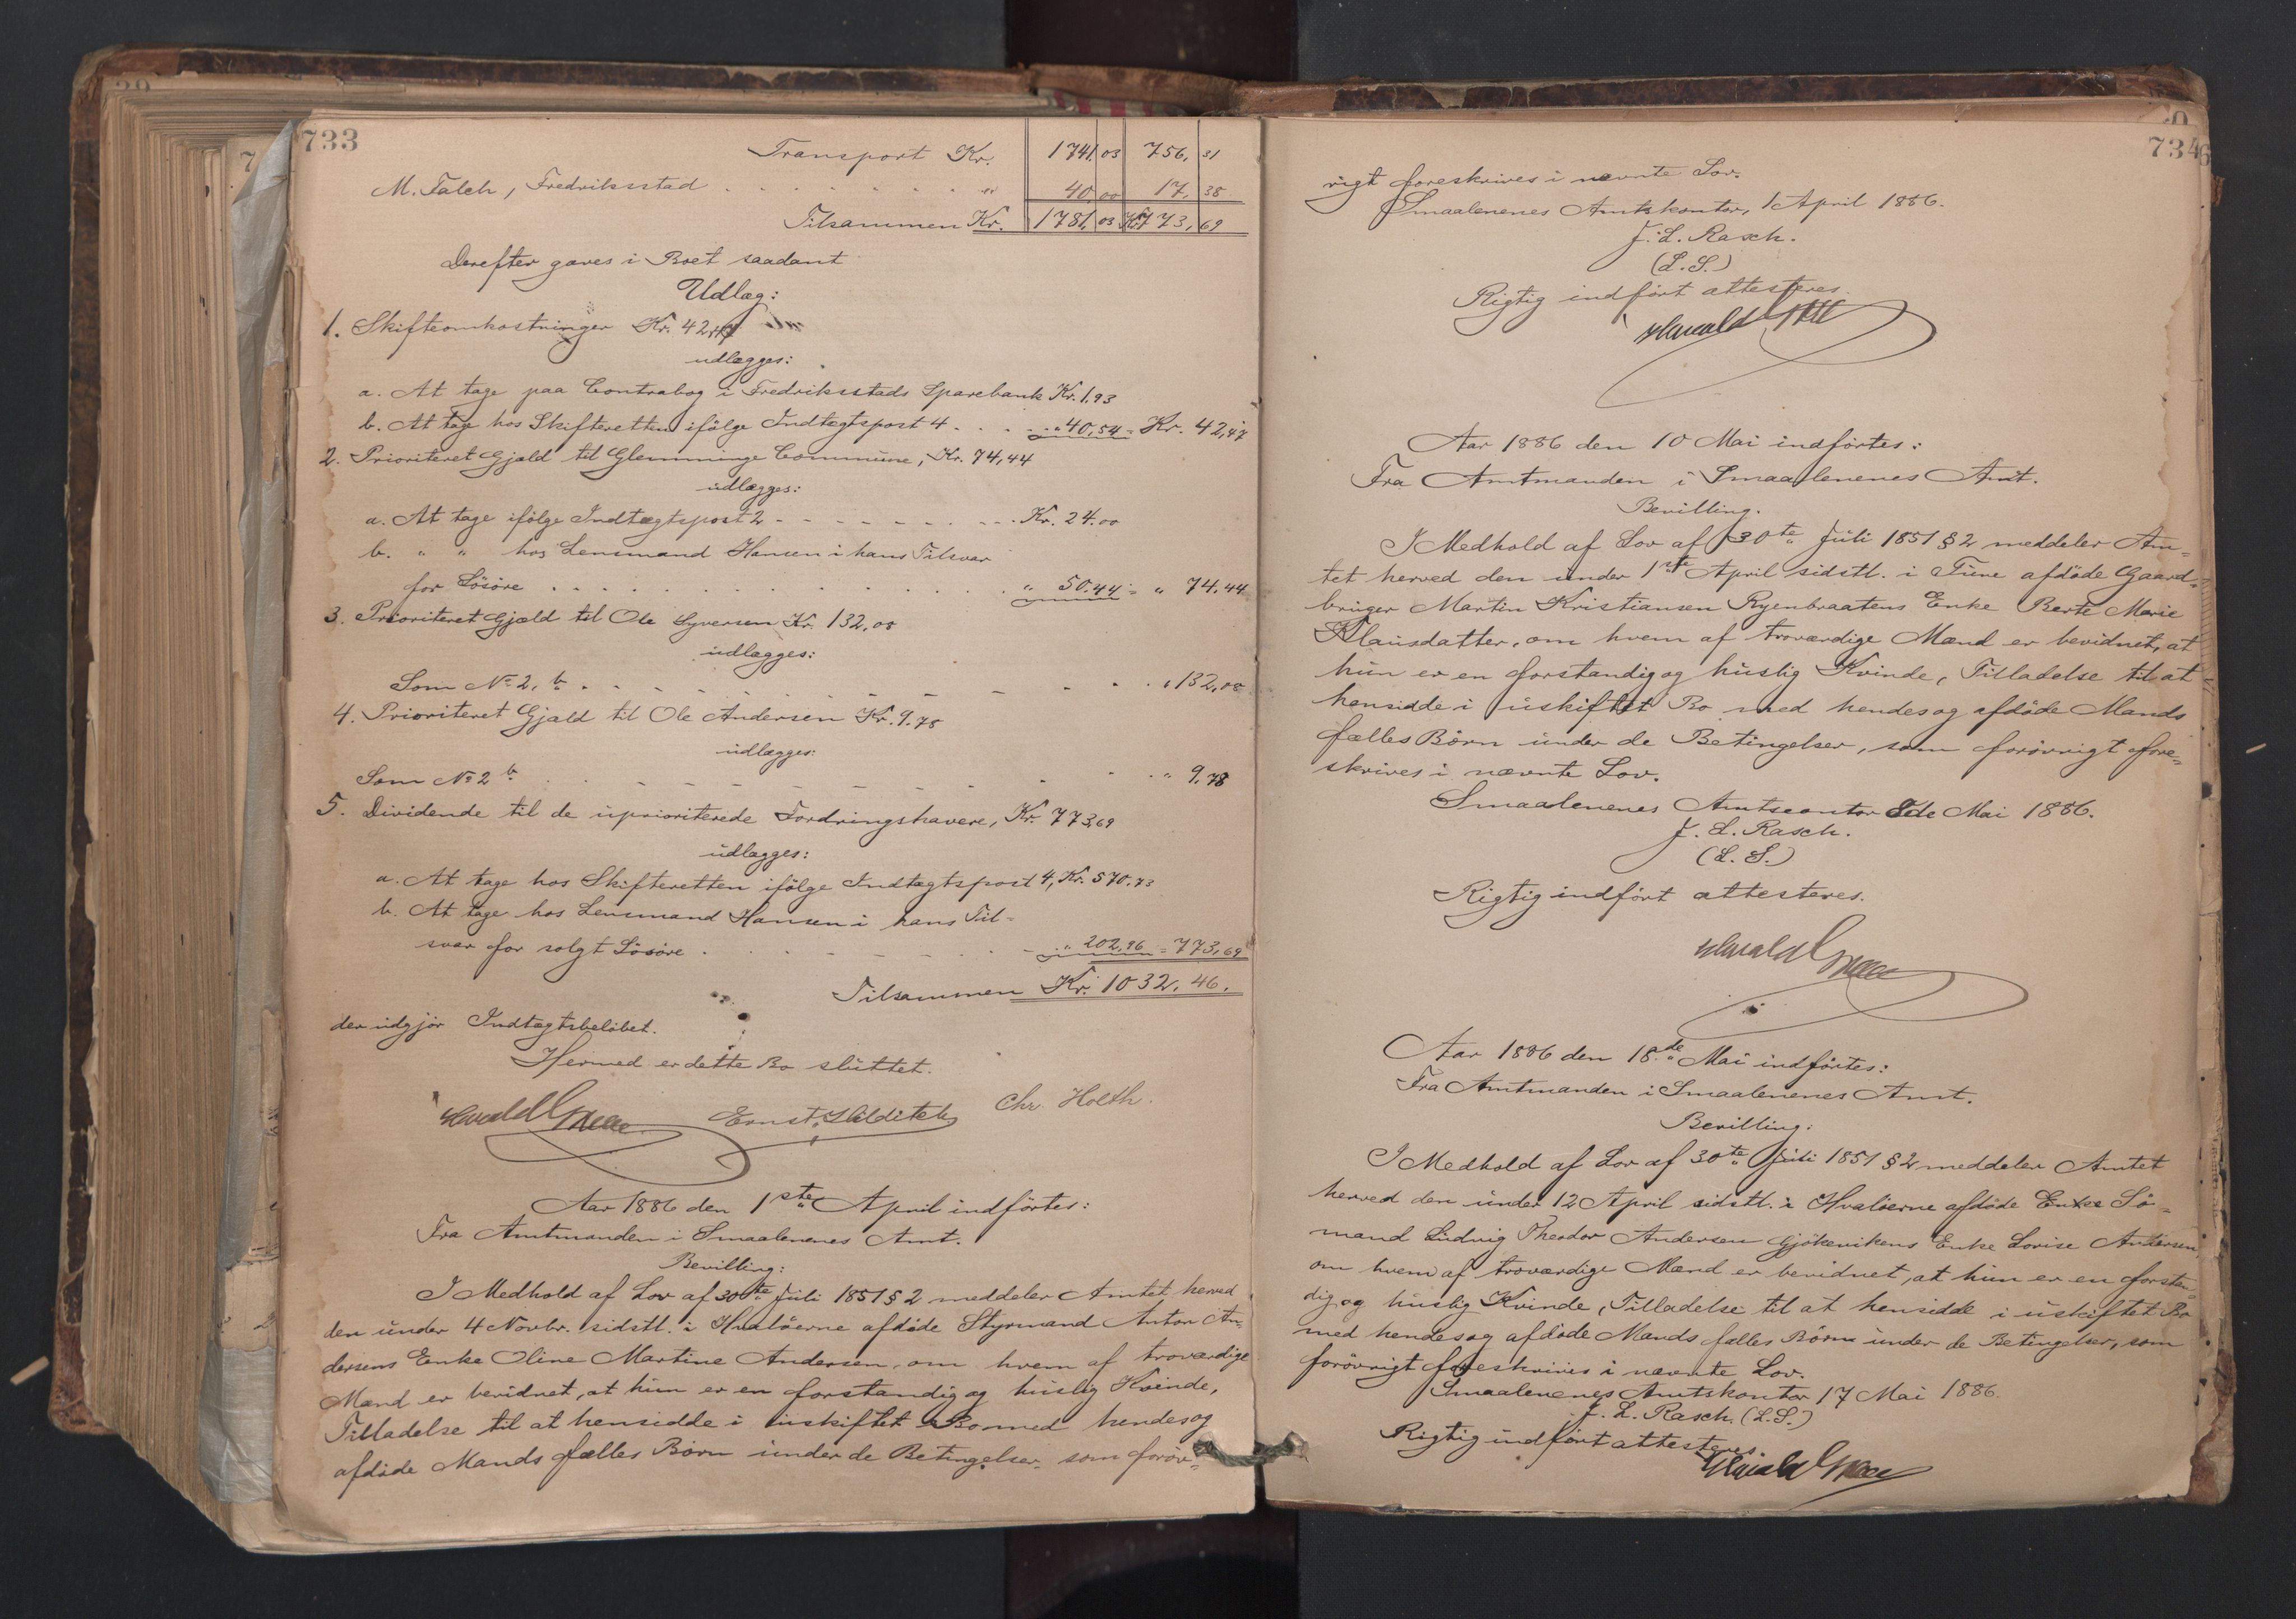 733
Transport Kr. 1741,03 756,31
M. Falch, Fredriksstad . . . . . . . . " 40,00 17,38
Tilsammen Kr. 1781,03 Kr. 773,69
Derefter gøres i Boet saadant
Udlæg:
1. Skifteomkostninger Kr. 42,47
udlægges:
a. At tage paa Contrabog i Fredriksstads Sparebank Kr. 1.93
b. At tage hos Skifteretten ifölge Indtægtspost 4 . . . . " 40,54 = Kr. 42,47
2. Prioriteret Gjæld til Glemminge Commune, Kr. 74,44
udlægges:
a. At tage ifölge Indtægtspost 2 - - - - - - - - Kr. 24.00
b. " " hos Lensmand Hansen i hans Tilsvar
for Lösöre . . . . . . . . . . . " 50.44 = " 74,44
3. Prioriteret Gjæld til Ole Syversen Kr. 132,00
udlægges:
Som No 2, b. . - - - - - - - - - . . " 132,00
4. Prioriteret Gjæld til Ole Andersen Kr. 9.78
udlægges:
Som No 2 b . - - - - - - - . . " 9.78
5. Dividende til de üprioriterede Fordringshavere, Kr. 773,69
udlægges:
a. At tage hos Skifteretten ifölge Indtægtspost 4, Kr. 570.73
b. At tage hos Lensmand Hansen i hans Til-
svar for solgt Lösöre . . - - - - - " 202,96 = 773,69
Tilsammen Kr. 1032.46.
der udgjör Indtægtsbelöbet.
Hermed er dette Bo slüttet.
Ernst Hilditch Chr. Holth.
Aar 1886 den 1ste April indförtes:
Fra Amtmanden i Smaalenenes Amt.
Bevilling:
I Medhold af Lov af 30te Jüli 1851 § 2 meddeler Amtet herved
den ünder 4 Novbr. sidstl. i Hvalöerne afdöde Styrmand Anton An-
dersens Enke Oline Martine Andersen, om hvem af troværdige
Mænd er bevidnet, at hün er en forstandig og hüslig Kvinde,
Tilladelse til at hensidde i üskiftet Bo med hendes og
afdöde Mands fælles Börn ünder de Betingelser, som foröv-
734
rigt foreskrives i nævnte Lov.
Smaalenenes Amtskontor, 1 April 1886.
J. L. Rasch.
(L. S.)
Rigtig indfört attesteres.
Aar 1886 den 10 Mai indförtes:
Fra Amtmanden i Smaalenenes Amt.
Bevilling.
I Medhold af Lov af 30te Jüli 1851 § 2 meddeler Am-
tet herved den ünder 1ste April sidstl. i Tüne afdöde Gaard-
brüger Martin Kristiansen Ryenbraatens Enke Berte Marie
Klausdatter, om hvem af troværdige Mænd er bevidnet, at
hün er en forstandig og hüslig Kvinde, Tilladelse til at
hensidde i üskiftet Bo med hendes og afdöde Mands
fælles Börn ünder de Betingelser, som forövrigt fore-
skrives i nævnte Lov.
Smaalenenes Amtscontor 8de Mai 1886.
J. L. Rasch.
(L. S.)
Rigtig indfört attesteres.
Aar 1886 den 18de Mai indförtes:
Fra Amtmanden i Smaalenenes Amt.
Bevilling:
I Medhold af Lov af 30te Jüli 1851 § 2 meddeler Amtet
herved den ünder 12 April sidstl. i Hvalöerne afdöde Enke Sö-
mand Lüdvig Theodor Andersen Gjökevikens Enke Lovise Andersen,
om hvem af troværdige Mænd er bevidnet, at hün er en forstan-
dig og hüslig Kvinde, Tilladelse til at hensidde i üskiftet Bo
med hendes og afdöde Mands fælles Börn ünder de Betingelser, som
forövrigt foreskrives i nævnte Lov.
Smaalenenes Amtskontor 17 Mai 1886.
J. L. Rasch. (L.S.)
Rigtig indfört attesteres.